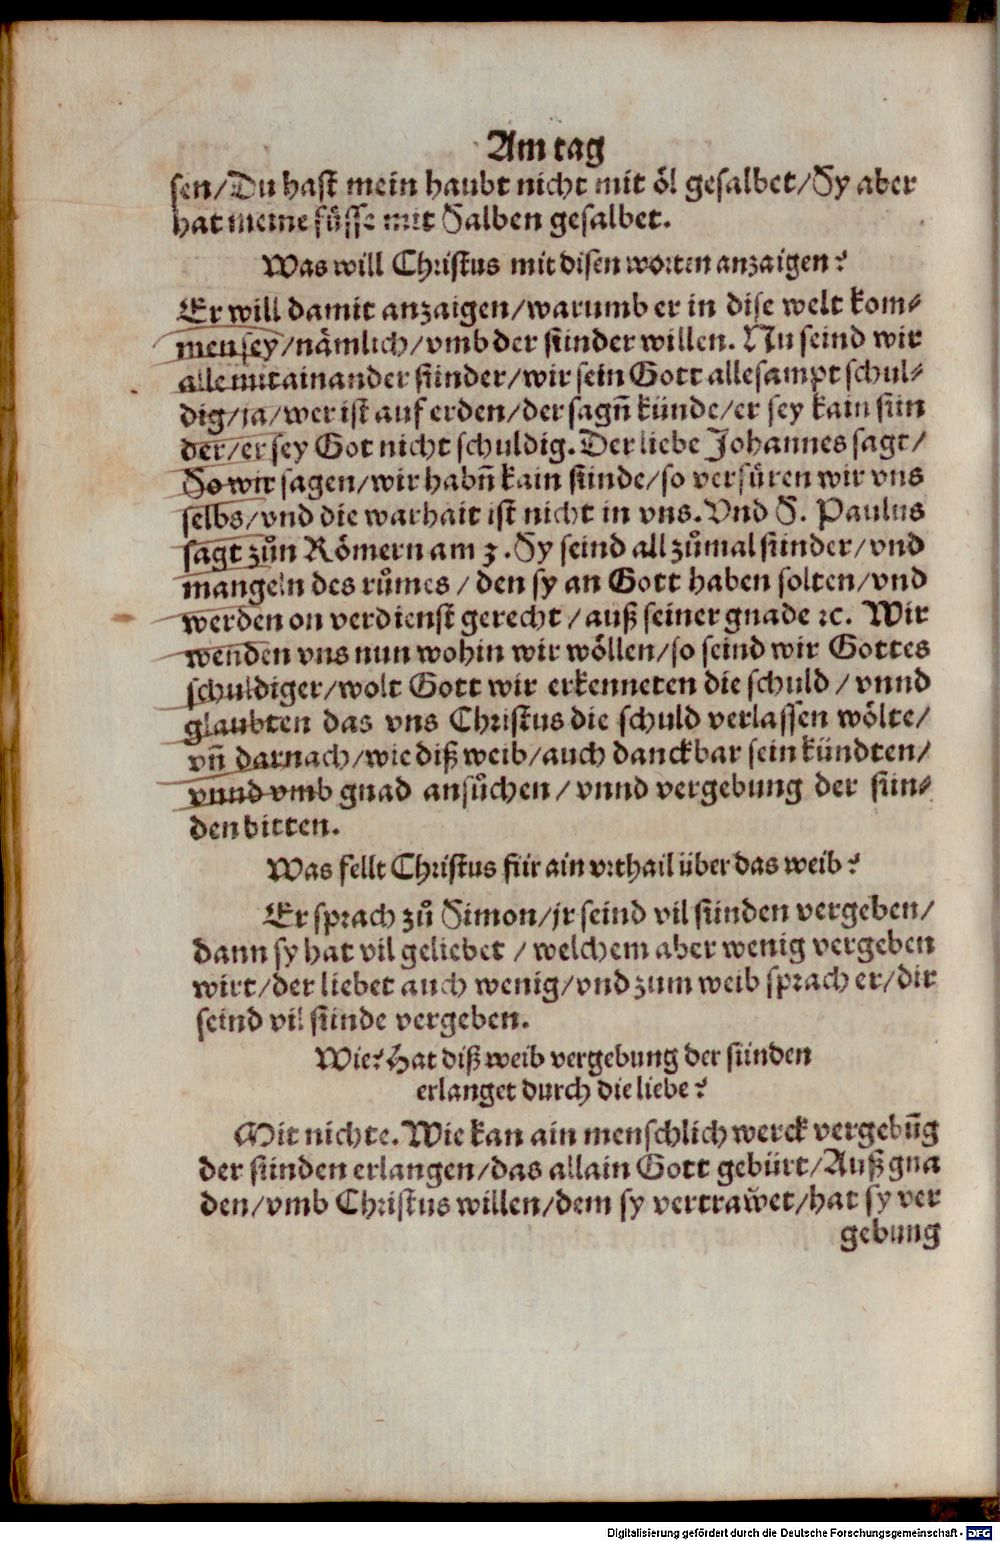 Am tag
sen/Du hast mein haubt nicht mit öl gesalbet/Sy aber
hat meine fuͤsse mit Salben gesalbet.
Was will Christus mit disen worten anzaigen?
Er will damit anzaigen/warumb er in dise welt kom⸗
men sey/nämlich/vmb der sünder willen. Nu seind wir
alle mitainander sünder/wir sein Gott allesampt schul⸗
dig/ja/wer ist auf erden/der sagn̄ künde/er sey kain sün
der/er sey Got nicht schuldig. Der liebe Johannes sagt/
So wir sagen/wir habn̄ kain sünde/so verfüren wir vns
selbs/vnd die warhait ist nicht in vns. Vnd S. Paulus
sagt zůn Römern am 3. Sy seind all zůmal sünder/vnd
mangeln des růmes/den sy an Gott haben solten/vnd
werden on verdienst gerecht/auß seiner gnade ꝛc. Wir
wenden vns nun wohin wir wöllen/so seind wir Gottes
schuldiger/wolt Gott wir erkenneten die schuld/vnnd
glaubten das vns Christus die schuld verlassen wölte/
vn̄ darnach/wie diß weib/auch danckbar sein kündten/
vnnd vmb gnad ansůchen/vnnd vergebung der sün⸗
den bitten.
Was fellt Christus für ain vrthail über das weib?
Er sprach zů Simon/jr seind vil sünden vergeben/
dann sy hat vil geliebet/welchem aber wenig vergeben
wirt/der liebet auch wenig/vnd zum weib sprach er/dir
seind vil sünde vergeben.
Wie? Hat diß weib vergebung der sünden
erlanget durch die liebe?
Mit nichte. Wie kan ain menschlich werck vergebūg
der sünden erlangen/das allain Gott gebürt/Auß gna
den/vmb Christus willen/dem sy vertraw̆et/hat sy ver
gebung
Digitalisierung gefördert durch die Deutsche Forschungsgemeinschaft - DFG